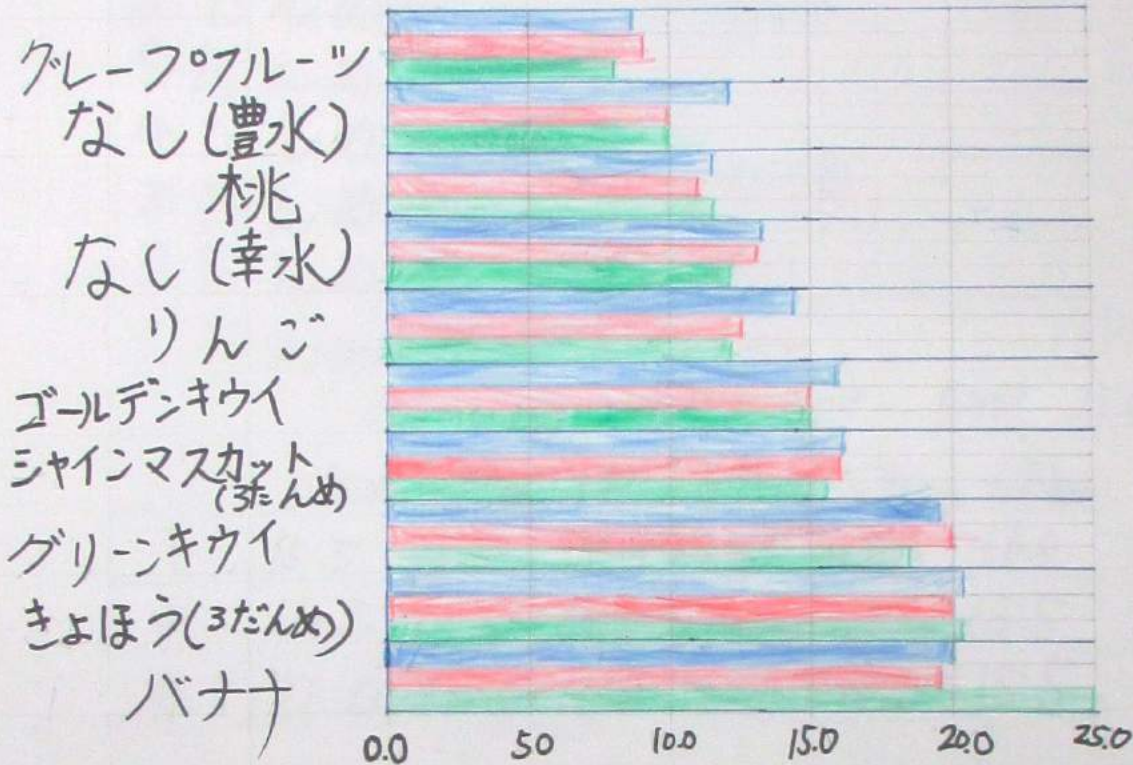 グレープフルーツ
なし(豊水)
桃
なし(幸水)
りんご
ゴールデンキウイ
シャインマスカット
(3だんめ)
グリーンキウイ
きょほう(3だんめ)
バナナ
0.0 50 10.0 15.0 20.0 25.0